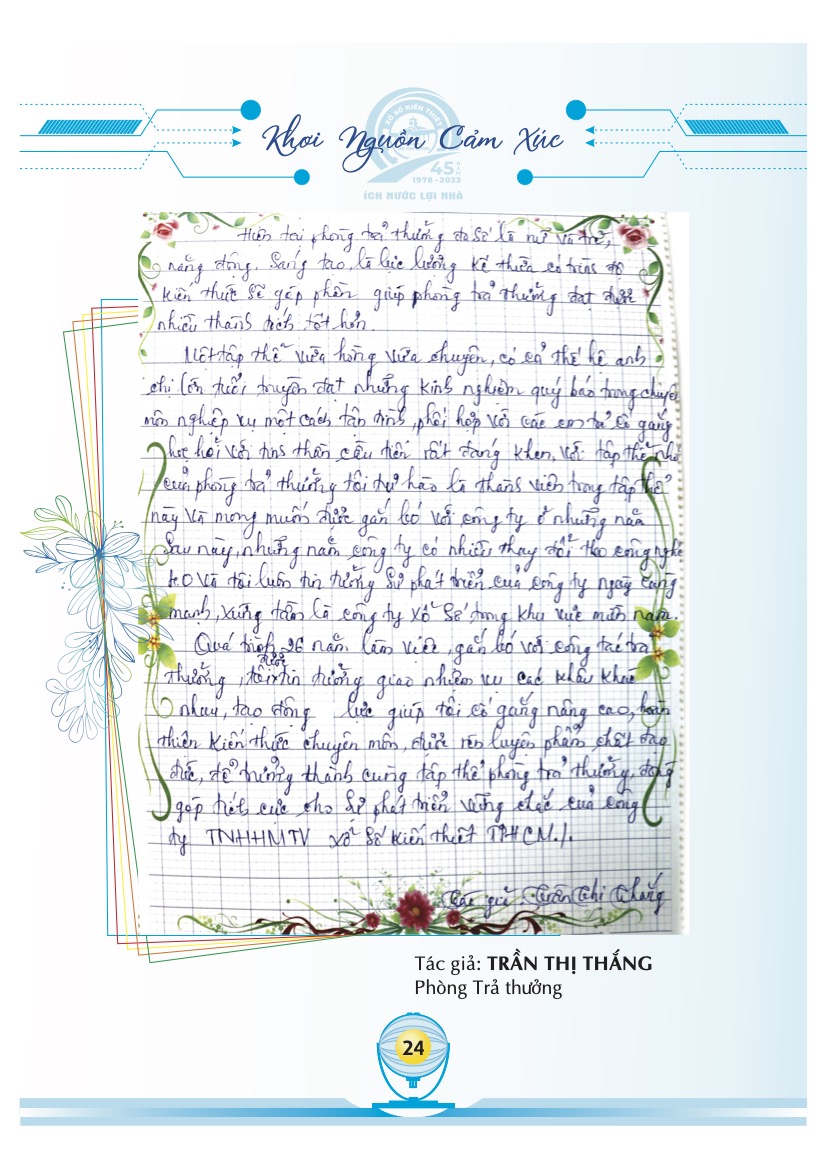 XỔ SỐ KIẾN THIẾT
Khơi Nguồn Cảm Xúc
45 NĂM
1978 - 2023
ÍCH NƯỚC LỢI NHÀ
Hiện tại phòng trả thưởng đa số là nữ và trẻ,
năng động, sáng tạo, là lực lượng kế thừa có trình độ
kiến thức sẽ góp phần giúp phòng trả thưởng đạt được
nhiều thành tích tốt hơn.
Một tập thể vừa hồng vừa chuyên, có cả thế hệ anh
chị lớn tuổi truyền đạt những kinh nghiệm quý báo trong chuyên
môn nghiệp vụ một cách tận tình, phối hợp với các em trẻ cố gắng
học hỏi với tinh thần cầu tiến rất đáng khen, với tập thể nhỏ
của phòng trả thưởng tôi tự hào là thành viên trong tập thể
này và mong muốn được gắn bó với công ty ở những năm
sau này, những năm công ty có nhiều thay đổi theo công nghệ
4.0 và tôi luôn tin tưởng sự phát triển của công ty ngày càng
mạnh, xứng tầm là công ty xổ số trong khu vực miền nam.
Quá trình 26 năm làm việc, gắn bó với công tác trả
thưởng, tôi được tin tưởng giao nhiệm vụ các khâu khác
nhau, tạo động lực giúp tôi cố gắng nâng cao, hoàn
thiện kiến thức chuyên môn, được rèn luyện phẩm chất đạo
đức, để trưởng thành cùng tập thể phòng trả thưởng, đóng
góp tích cực cho sự phát triển vững chắc của công
ty TNHHMTV xổ số kiến thiết TPHCM./.
Tác giả: Trần Thị Thắng
Tác giả: TRẦN THỊ THẮNG
Phòng Trả thưởng
24